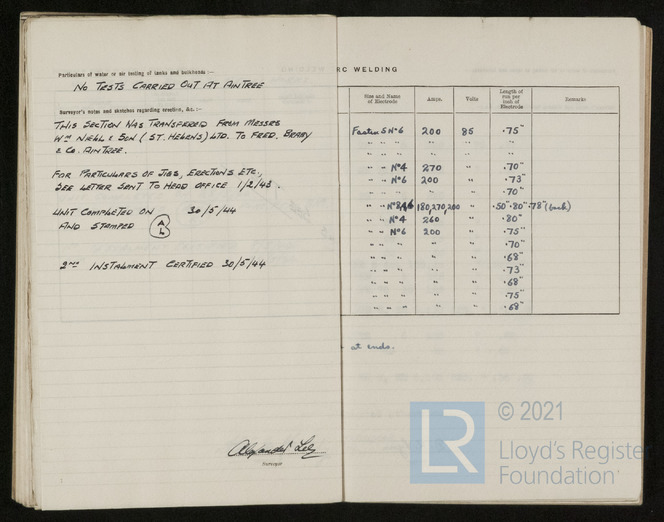 Particulars of water or air testing of tanks and bulkheads :—
NO TESTS CARRIED OUT AT AINTREE
Surveyor's notes and sketches regarding erection, &c. :—
THIS SECTION WAS TRANSFERED FROM MESSRS
Wm NIELL & SON (ST. HELENS) LTD. TO FRED. BRABY
& Co. AINTREE.
FOR PARTICULARS OF JIGS, ERECTIONS ETC.,
SEE LETTER SENT TO HEAD OFFICE 1/2/43.
UNIT COMPLETED ON 30/5/44
AND STAMPED
2ND INSTALMENT CERTIFIED 30/5/44
Surveyor
RC WELDING
Size and Name of Electrode Amps. Volts Length of run per inch of Electrode Remarks
5 No 6 200 85 .75"
" " " " " " "
" " " " " " "
" " No 4 270 " .70"
" " No 6 200 " .73"
" " " " " " .70"
" " 180,270,200 " .50" .80" .78" (each)
" " No 4 260 " .80"
" " No 6 200 " .75"
" " " " " " .70"
" " " " " " .68"
" " " " " " .73"
" " " " " " .68"
" " " " " " .75"
" " " " " " .68"
at ends.
LR
© 2021
Lloyd's Register
Foundation